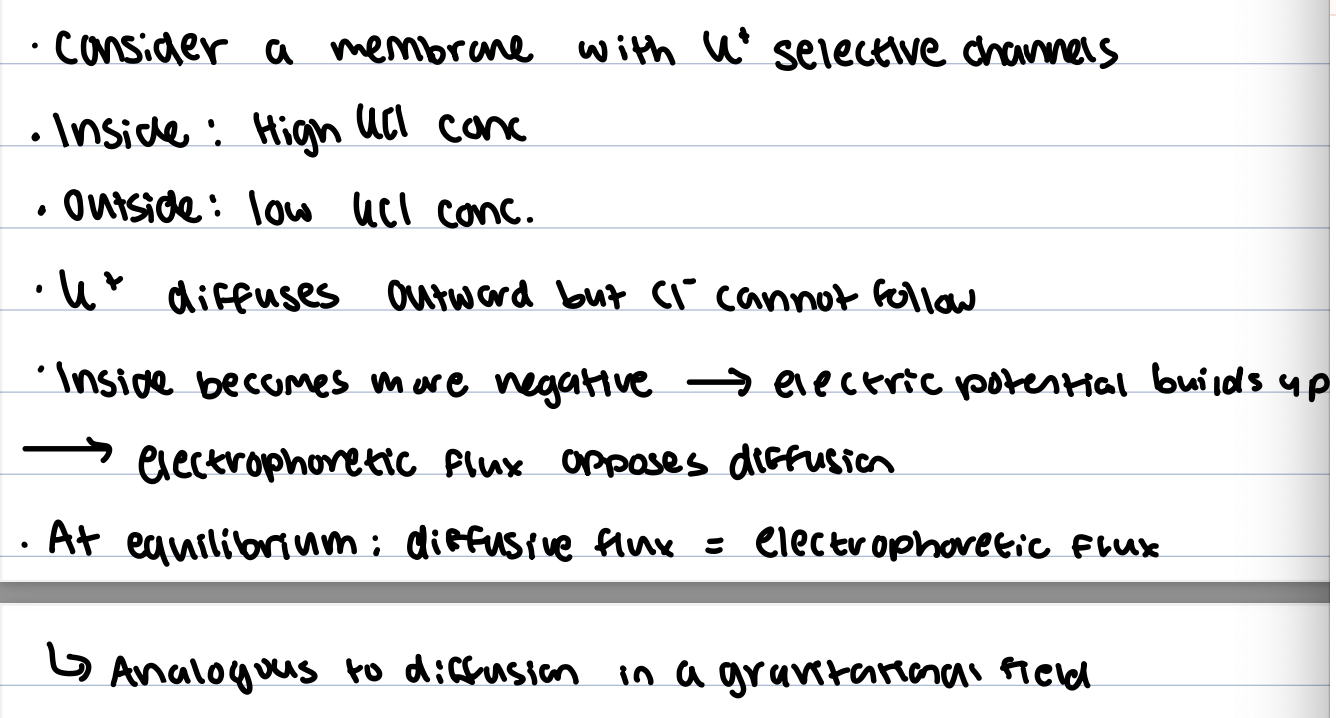 · Consider a membrane with K⁺ selective channels
· Inside: High KCl conc
· Outside: low KCl conc.
· K⁺ diffuses outward but Cl⁻ cannot follow
· Inside becomes more negative → electric potential builds up
→ electrophoretic flux opposes diffusion
· At equilibrium: diffusive flux = electrophoretic flux
↳ Analogous to diffusion in a gravitational field